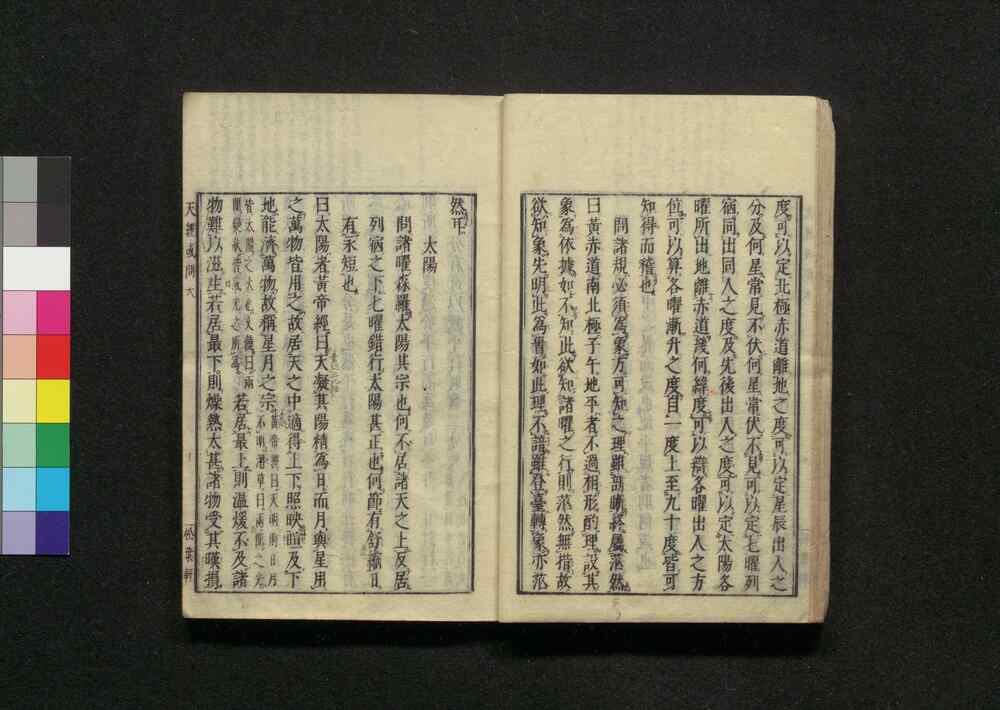 度可以定北極赤道離地之度可以定星辰出入之
分及何星常見不伏何星常伏不見可以定七曜列
宿同出同入之度及先後出入之度可以定太陽各
曜所出地離赤道幾何緯度可以辯各曜出入之方
位可以算各曜漸升之度自一度上至九十度皆可
知得而稽也
問諸規必須為象方可知之理雖諮晰終屬茫然
曰黃赤道南北極子午地平者不過相形酌理設其
象為依據如不知此欲知諸曜之行則茫然無措故
欲知象先明此為實如此理不諳雖登臺轉象亦茫
然耳
太陽
問諸曜森羅太陽其宗也何不居諸天之上反居
列宿之下七曜錯行太陽其正也何節有舒縮日
有永短也
曰太陽者黃帝經曰天凝其陽精為日而月與星用
之萬物皆用之故居天之中適得上下照映暄及下
地能濟萬物故稱星月之宗
若居最上則溫煖不及諸
物難以滋生若居最下則燥熱太甚諸物受其暵損
天經或問 六
松葉軒